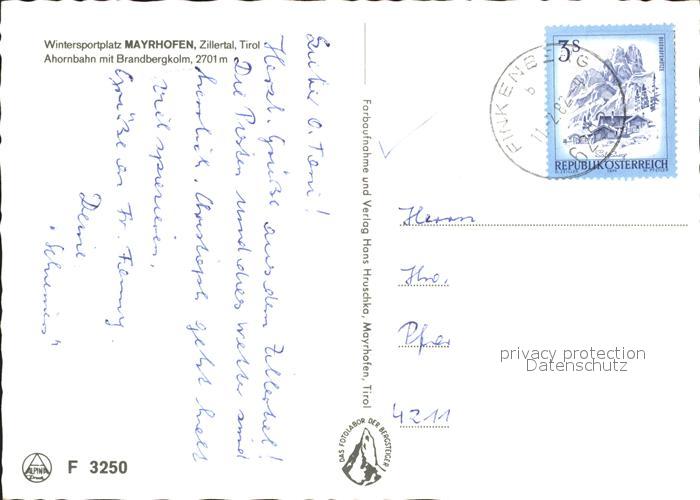 Wintersportplatz MAYRHOFEN, Zillertal, Tirol
Ahornbahn mit Brandbergkolm, 2701 m
Lieber O. Toni!
Herzl. Grüße aus dem Zillertal!
Die Pisten und das Wetter sind
herrlich. Christoph geht viel
spazieren,
Grüße an Fr. Fanny.
Deine
Farbaufnahme und Verlag Hans Hruschka, Mayrhofen, Tirol
DAS FOTOLABOR DER BERGSTEIGER
FINKENBERG
b
11.2.82
3 S
REPUBLIK ÖSTERREICH
Herrn
Pfar
4211
privacy protection
Datenschutz
ALPINA
F 3250